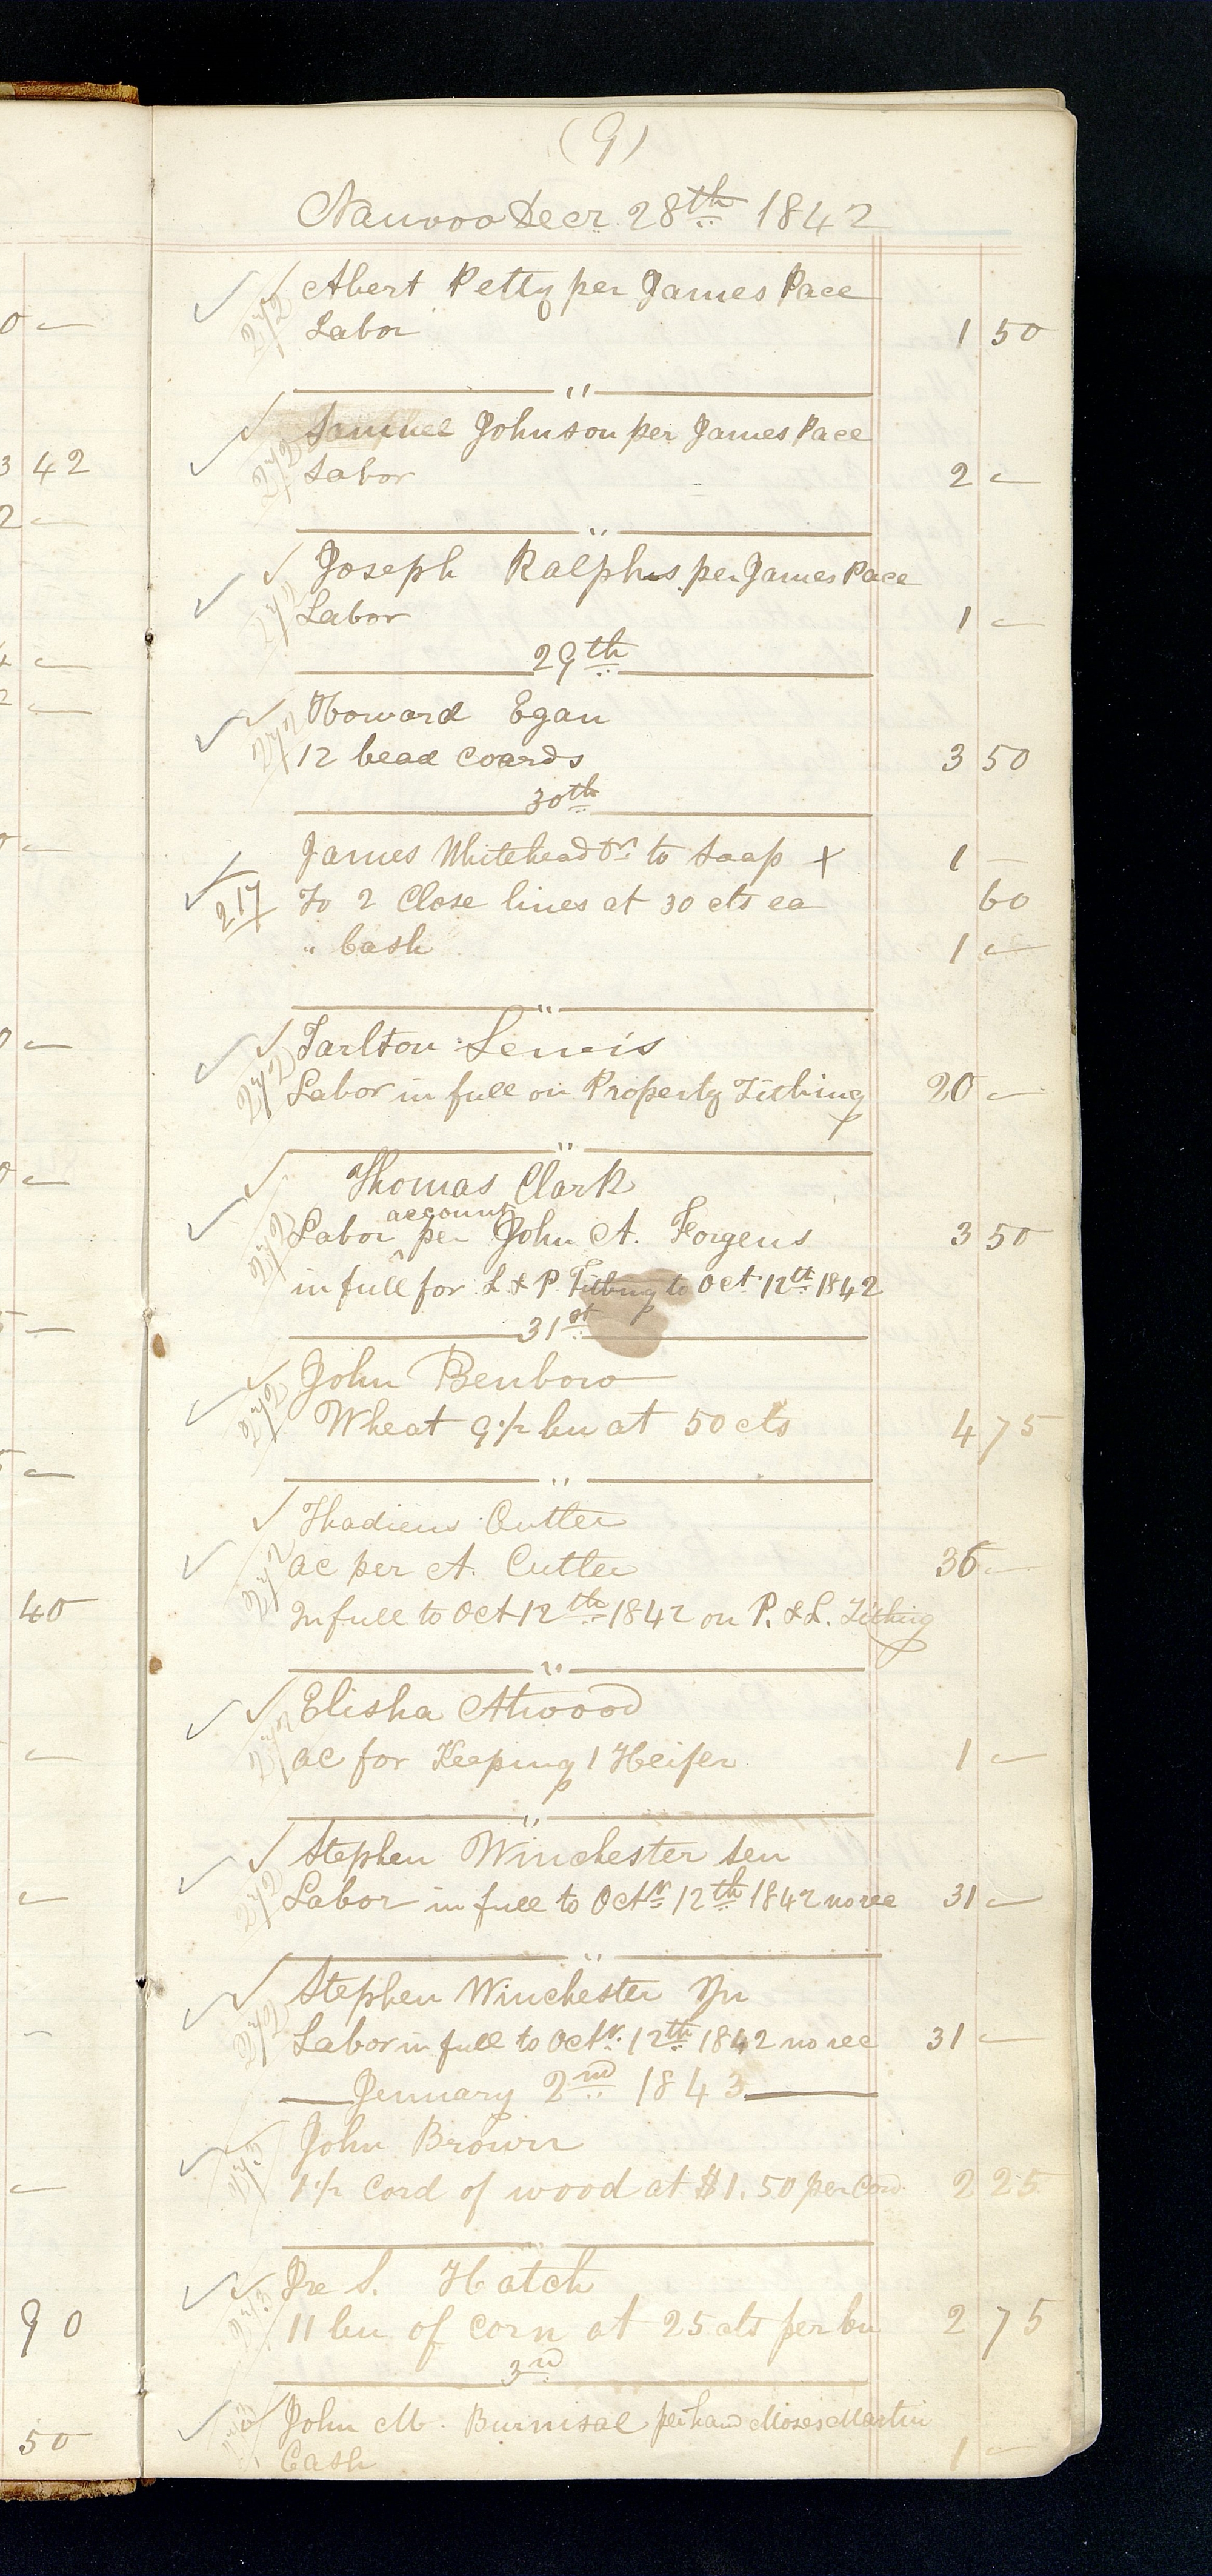 (9)
Nauvoo Decr. 28th 1842
0 —
✓ ✓ Abert Petty per James Pace
272 Labor 1 50
"
✓ ✓ Samuel Johnson per James Pace
3 42
272 Labor 2 —
2 —
"
✓ ✓ Joseph Ralphs per James Pace
272 Labor 1 —
29th
✓ ✓ Howard Egan
272 12 bead coards 3 50
30th
James Whitehead Dr. to Soap + 1 —
217 To 2 Close lines at 30 cts ea 60
" Cash 1 —
"
✓ ✓ Tarlton Lewis
272 Labor in full on Property Tithing 20 —
"
✓ ✓ Thomas Clark
account
272 Labor per John A. Forgeus 3 50
in full for L & P. Tithing to Oct 12th 1842
31st
✓ ✓ John Benbow
272 Wheat 9 1/2 bu at 50 cts 4 75
"
✓ ✓ Thadieus Cutler
272 ac per A. Cutler 36 —
40
In full to Oct 12th 1842 on P. & L. Tithing
"
✓ ✓ Elisha Atwood
272 ac for Keeping 1 Heifer 1 —
"
✓ ✓ Stephen Winchester Sen
272 Labor in full to Octr 12th 1842 no rec 31 —
"
✓ ✓ Stephen Winchester Jn
272 Labor in full to Octr. 12th 1842 no rec 31 —
Jenuary 2nd 1843
✓ ✓ John Brown
273 1 1/2 Cord of wood at $1.50 per Cord 2 25
"
✓ ✓ Ira S. Hatch
90
273 11 bu of corn at 25 cts per bu 2 75
3rd
✓ ✓ John M. Burnisal per hand Moses Martin
50
273 Cash 1 —